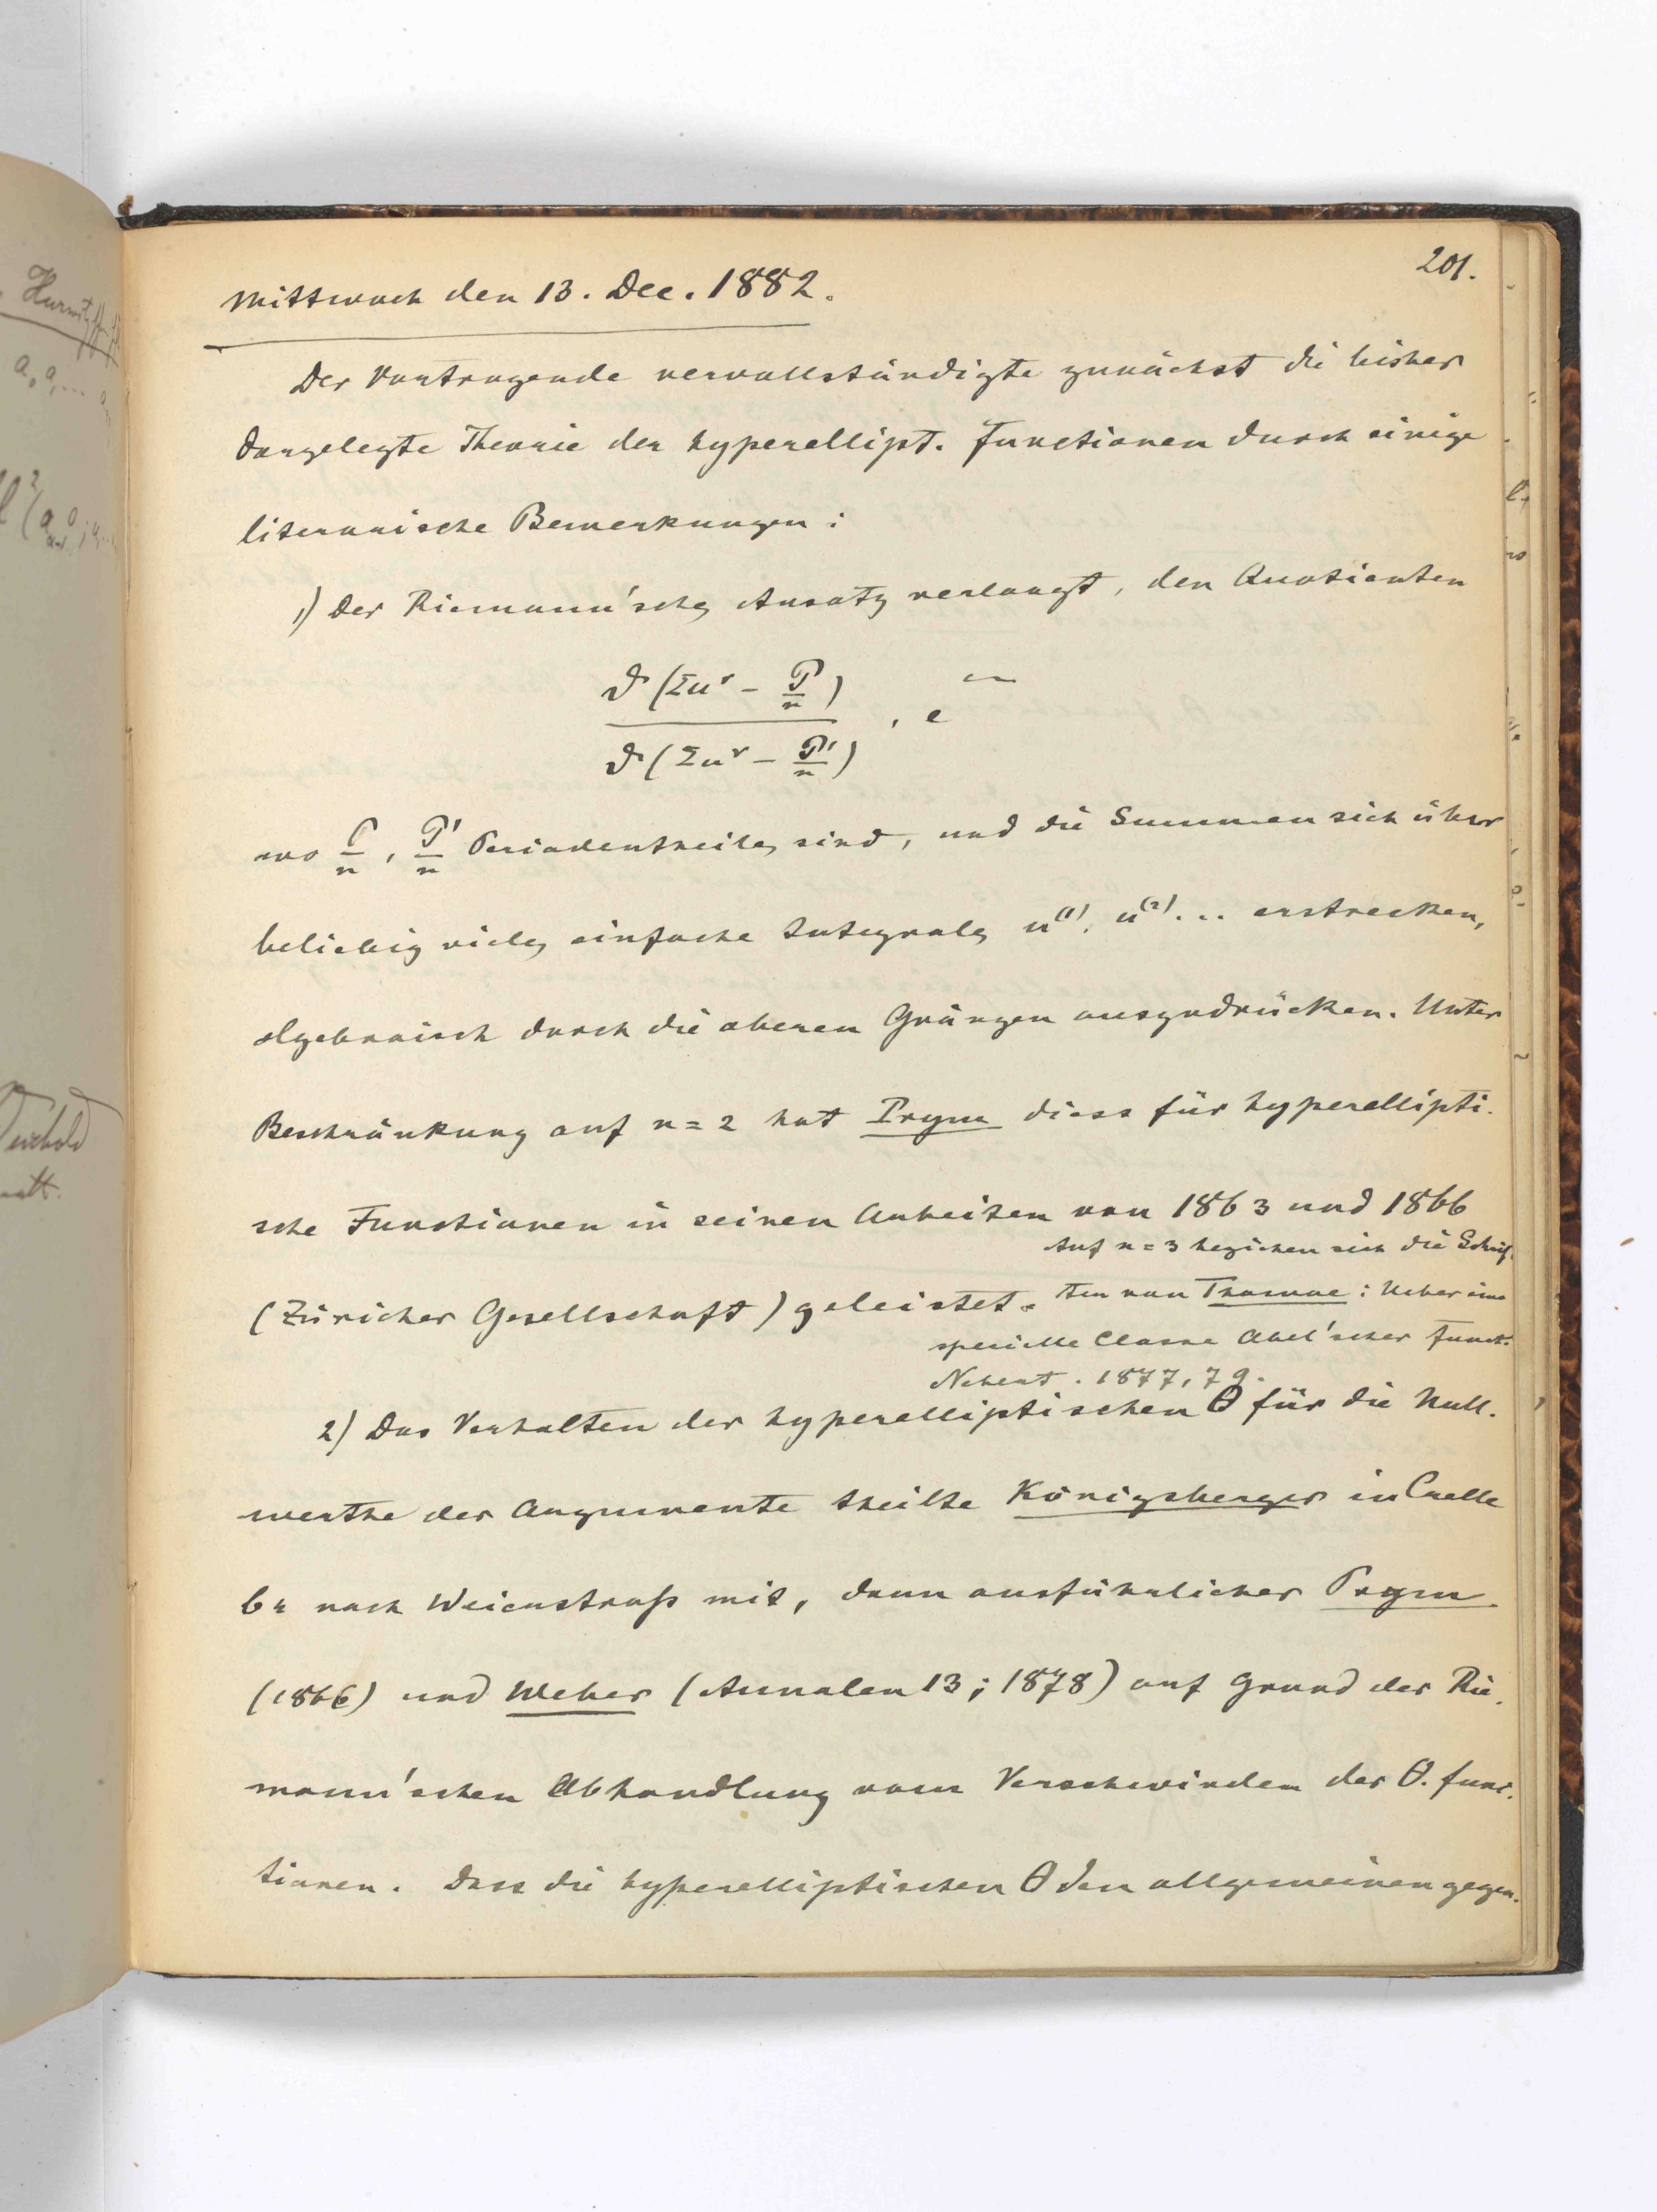 201.
Mittwoch den 13. Dec. 1882.
Der Vortragende vervollständigte zunächst die bisher
dargelegte Theorie der hyperellipt. Functionen durch einige
literarische Bemerkungen:
1) Der Riemann'sche Ansatz verlangt, den Quotienten
ϑ (Σu^ν − P/n)
ϑ (Σu^ν − P'/n) . e
wo P/n, P'/n Periodentheile sind, und die Summen sich über
beliebig viele einfache Integrale u^(1), u^(2)... erstrecken,
algebraisch durch die oberen Gränzen auszudrücken. Unter
Beschränkung auf n = 2 hat Prym diess für hyperellipti-
sche Functionen in seinen Arbeiten von 1863 und 1866
(Züricher Gesellschaft) geleistet.
Auf n = 3 beziehen sich die Schrif-
ten von Thomae: Ueber eine
specielle Classe Abel'scher Funct.
Nebert. 1877, 79.
2) Das Verhalten der hyperelliptischen θ für die Null-
werthe der Argumente theilte Königsberger in Crelle
64 nach Weierstraß mit, dann ausführlicher Prym
(1866) und Weber (Annalen 13; 1878) auf Grund der Rie-
mann'schen Abhandlung vom Verschwinden der θ-func-
tionen. Dass die hyperelliptischen θ den allgemeinen gegen-
Hurwitz